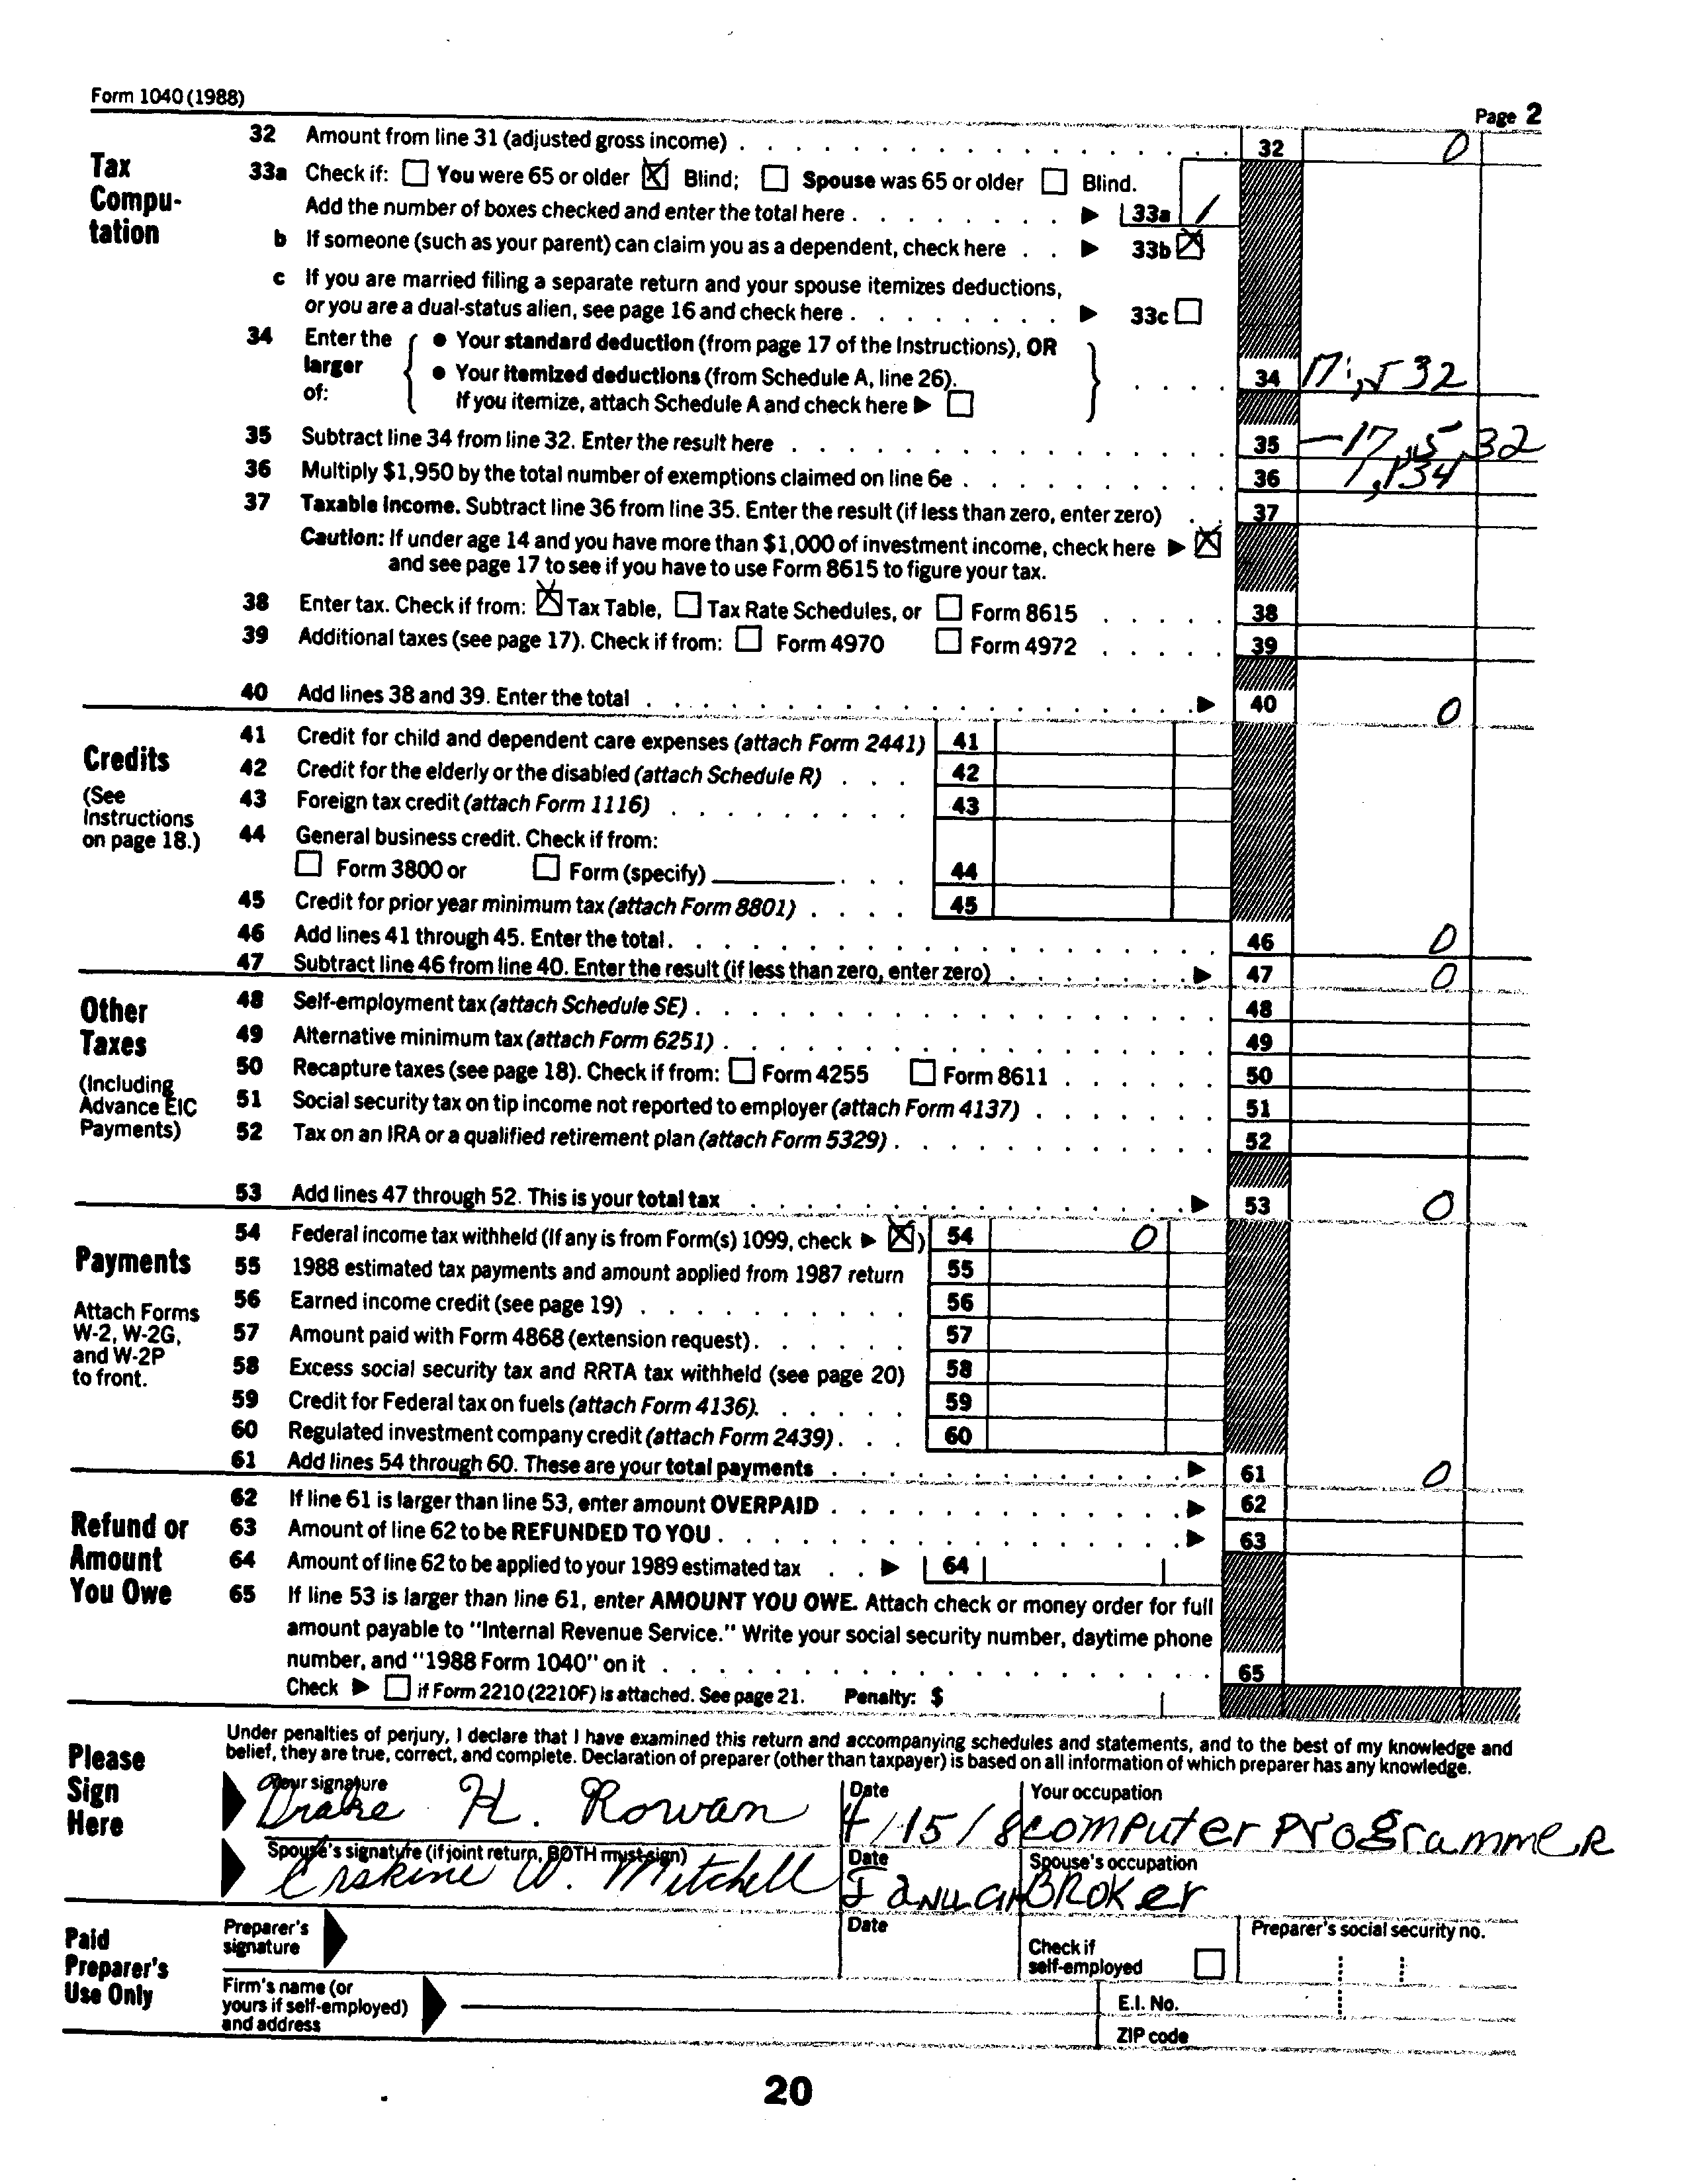 Form 1040 (1988)
Page 2
Tax Compu-tation
32 Amount from line 31 (adjusted gross income) . . . 32 0
33a Check if: ☐ You were 65 or older ☒ Blind; ☐ Spouse was 65 or older ☐ Blind.
Add the number of boxes checked and enter the total here . . . ▶ 33a 1
b If someone (such as your parent) can claim you as a dependent, check here . . ▶ 33b ☒
c If you are married filing a separate return and your spouse itemizes deductions,
or you are a dual-status alien, see page 16 and check here . . . ▶ 33c ☐
34 Enter the larger of: { ● Your standard deduction (from page 17 of the Instructions), OR
● Your itemized deductions (from Schedule A, line 26).
If you itemize, attach Schedule A and check here ▶ ☐ } . . . . 34 17,532
35 Subtract line 34 from line 32. Enter the result here . . . 35 -17,532
36 Multiply $1,950 by the total number of exemptions claimed on line 6e . . . 36 1,134
37 Taxable income. Subtract line 36 from line 35. Enter the result (if less than zero, enter zero) . . 37
Caution: If under age 14 and you have more than $1,000 of investment income, check here ▶ ☒
and see page 17 to see if you have to use Form 8615 to figure your tax.
38 Enter tax. Check if from: ☒ Tax Table, ☐ Tax Rate Schedules, or ☐ Form 8615 . . . 38
39 Additional taxes (see page 17). Check if from: ☐ Form 4970 ☐ Form 4972 . . . 39
40 Add lines 38 and 39. Enter the total . . . ▶ 40 0
Credits
(See Instructions on page 18.)
41 Credit for child and dependent care expenses (attach Form 2441) 41
42 Credit for the elderly or the disabled (attach Schedule R) . . . 42
43 Foreign tax credit (attach Form 1116) . . . 43
44 General business credit. Check if from:
☐ Form 3800 or ☐ Form (specify) . . . 44
45 Credit for prior year minimum tax (attach Form 8801) . . . . 45
46 Add lines 41 through 45. Enter the total. . . . 46 0
47 Subtract line 46 from line 40. Enter the result (if less than zero, enter zero) . . . ▶ 47 0
Other Taxes
(Including Advance EIC Payments)
48 Self-employment tax (attach Schedule SE) . . . 48
49 Alternative minimum tax (attach Form 6251) . . . 49
50 Recapture taxes (see page 18). Check if from: ☐ Form 4255 ☐ Form 8611 . . . 50
51 Social security tax on tip income not reported to employer (attach Form 4137) . . . 51
52 Tax on an IRA or a qualified retirement plan (attach Form 5329) . . . 52
53 Add lines 47 through 52. This is your total tax . . . ▶ 53 0
Payments
Attach Forms W-2, W-2G, and W-2P to front.
54 Federal income tax withheld (If any is from Form(s) 1099, check ▶ ☒) 54 0
55 1988 estimated tax payments and amount applied from 1987 return 55
56 Earned income credit (see page 19) . . . 56
57 Amount paid with Form 4868 (extension request) . . . 57
58 Excess social security tax and RRTA tax withheld (see page 20) 58
59 Credit for Federal tax on fuels (attach Form 4136). . . . 59
60 Regulated investment company credit (attach Form 2439) . . . 60
61 Add lines 54 through 60. These are your total payments . . . ▶ 61 0
Refund or Amount You Owe
62 If line 61 is larger than line 53, enter amount OVERPAID . . . ▶ 62
63 Amount of line 62 to be REFUNDED TO YOU . . . ▶ 63
64 Amount of line 62 to be applied to your 1989 estimated tax . . ▶ 64
65 If line 53 is larger than line 61, enter AMOUNT YOU OWE. Attach check or money order for full
amount payable to "Internal Revenue Service." Write your social security number, daytime phone
number, and "1988 Form 1040" on it . . . 65
Check ▶ ☐ if Form 2210 (2210F) is attached. See page 21. Penalty: $
Please Sign Here
Under penalties of perjury, I declare that I have examined this return and accompanying schedules and statements, and to the best of my knowledge and
belief, they are true, correct, and complete. Declaration of preparer (other than taxpayer) is based on all information of which preparer has any knowledge.
Your signature Date Your occupation
Drake H. Rowan 4/15/8 computer Programmer
Spouse's signature (if joint return, BOTH must sign) Date Spouse's occupation
Erskine W. Mitchell Broker
Paid Preparer's Use Only
Preparer's signature Date Check if self-employed ☐ Preparer's social security no.
Firm's name (or yours if self-employed) and address E.I. No.
ZIP code
20